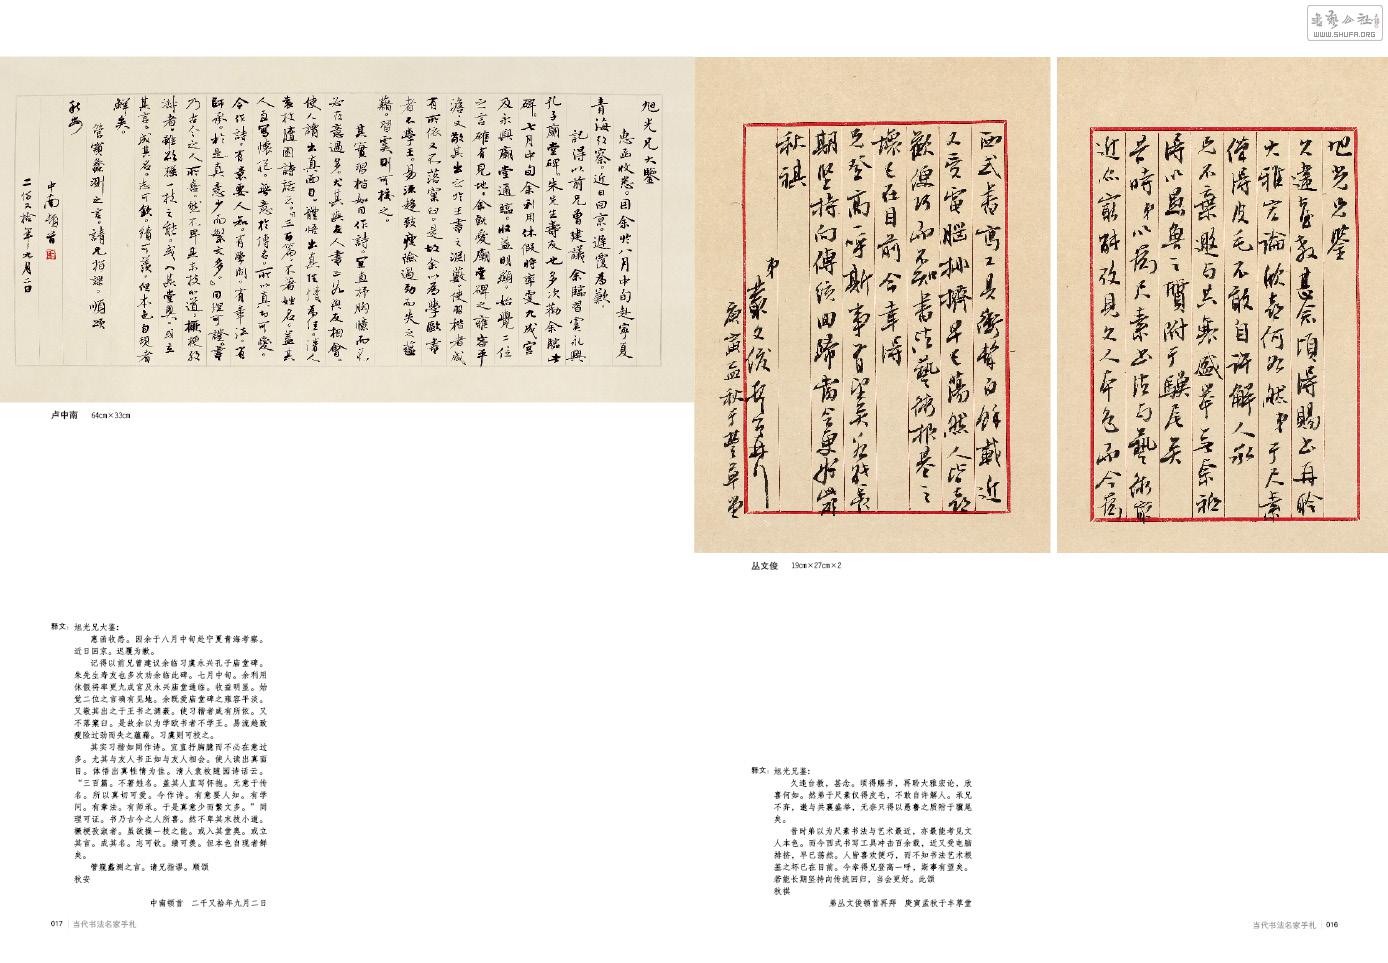 书艺公社
WWW.SHUFA.ORG
旭光兄鑒
久違台教甚念頃得賜書再聆
大雅宏論欣喜何如然弟于尺素
僅得皮毛不敢自許解人承
兄不棄邀与共襄盛举無奈祗
得以愚魯之質附于驥尾矣
昔時弟以為尺素書法与藝術最
近亦最能考見文人本色而今西
西式書寫工具衝擊百餘載近
又受電腦排擠早已蕩然人皆喜
歡便巧而不知書法藝術根基之
壞已在目前今幸得
兄登高一呼斯事有望矣若能長
期堅持向傳統回歸當会更好此頌
秋祺
弟叢文俊頓首再拜
庚寅孟秋于豐草堂
丛文俊 19cm×27cm×2
释文：旭光兄鉴：
久违台教，甚念。顷得赐书，再聆大雅宏论，欣
喜何如。然弟于尺素仅得皮毛，不敢自许解人。承兄
不弃，邀与共襄盛举，无奈只得以愚鲁之质附于骥尾
矣。
昔时弟以为尺素书法与艺术最近，亦最能考见文
人本色。而今西式书写工具冲击百余载，近又受电脑
排挤，早已荡然。人皆喜欢便巧，而不知书法艺术根
基之坏已在目前。今幸得兄登高一呼，斯事有望矣。
若能长期坚持向传统回归，当会更好。此颂
秋祺
弟丛文俊顿首再拜 庚寅孟秋于丰草堂
当代书法名家手札 016
旭光兄大鑒
惠函收悉。因余於八月中旬赴寧夏
青海考察。近日回京。遲覆為歉。
記得以前兄曾建議余臨習虞永興
孔子廟堂碑。朱先生壽友也多次勸余臨此
碑。七月中旬余利用休假時率更九成宮
及永興廟堂通臨。收益明顯。始覺二位
之言確有見地。余既愛廟堂碑之雍容平
澹。又敬其出之於王書之淵藪。使習楷者咸
有所依。又不落窠臼。是故余以為學歐書
者不學王。易流趨致瘦險過勁而失之蘊
藉。習虞則可校之。
其實習楷如同作詩。宜直抒胸臆而不
必在意過多。尤其與友人書正如與友相會。
使人讀出真面目。體悟出真性情為佳。清人
袁枚隨園詩話云。三百篇。不著姓名。蓋其
人直寫懷抱。無意於傳名。所以真切可愛。
今作詩。有意要人知。有學問。有章法。有
師承。於是真意少而繁文多。同理可證。書
乃古今之人所喜。然不卑其末技小道。橛梗孜
淑者。雖欲強一技之能。或入其堂奧。或立
其言。成其名。志可欽。績可羨。但本色自現者
鮮矣。
管窺蠡測之言。請兄指謬。順頌
秋安
中南頓首
二仟又拾年九月二日
卢中南 64cm×33cm
释文：旭光兄大鉴：
惠函收悉。因余于八月中旬赴宁夏青海考察。
近日回京。迟覆为歉。
记得以前兄曾建议余临习虞永兴孔子庙堂碑。
朱先生寿友也多次劝余临此碑。七月中旬。余利用
休假将率更九成宫及永兴庙堂通临。收益明显。始
觉二位之言确有见地。余既爱庙堂碑之雍容平淡。
又敬其出之于王书之渊薮。使习楷者咸有所依。又
不落窠臼。是故余以为学欧书者不学王。易流趋致
瘦险过劲而失之蕴藉。习虞则可校之。
其实习楷如同作诗。宜直抒胸臆而不必在意过
多。尤其与友人书正如与友人相会。使人读出真面
目。体悟出真性情为佳。清人袁枚随园诗话云。
“三百篇。不著姓名。盖其人直写怀抱。无意于传
名。所以真切可爱。今作诗。有意要人知。有学
问。有章法。有师承。于是真意少而繁文多。”同
理可证。书乃古今之人所喜。然不卑其末技小道。
橛梗孜淑者。虽欲操一技之能。或入其堂奥。或立
其言。成其名。志可钦。绩可羡。但本色自现者鲜
矣。
管窥蠡测之言。请兄指谬。顺颂
秋安
中南顿首 二千又拾年九月二日
017 当代书法名家手札